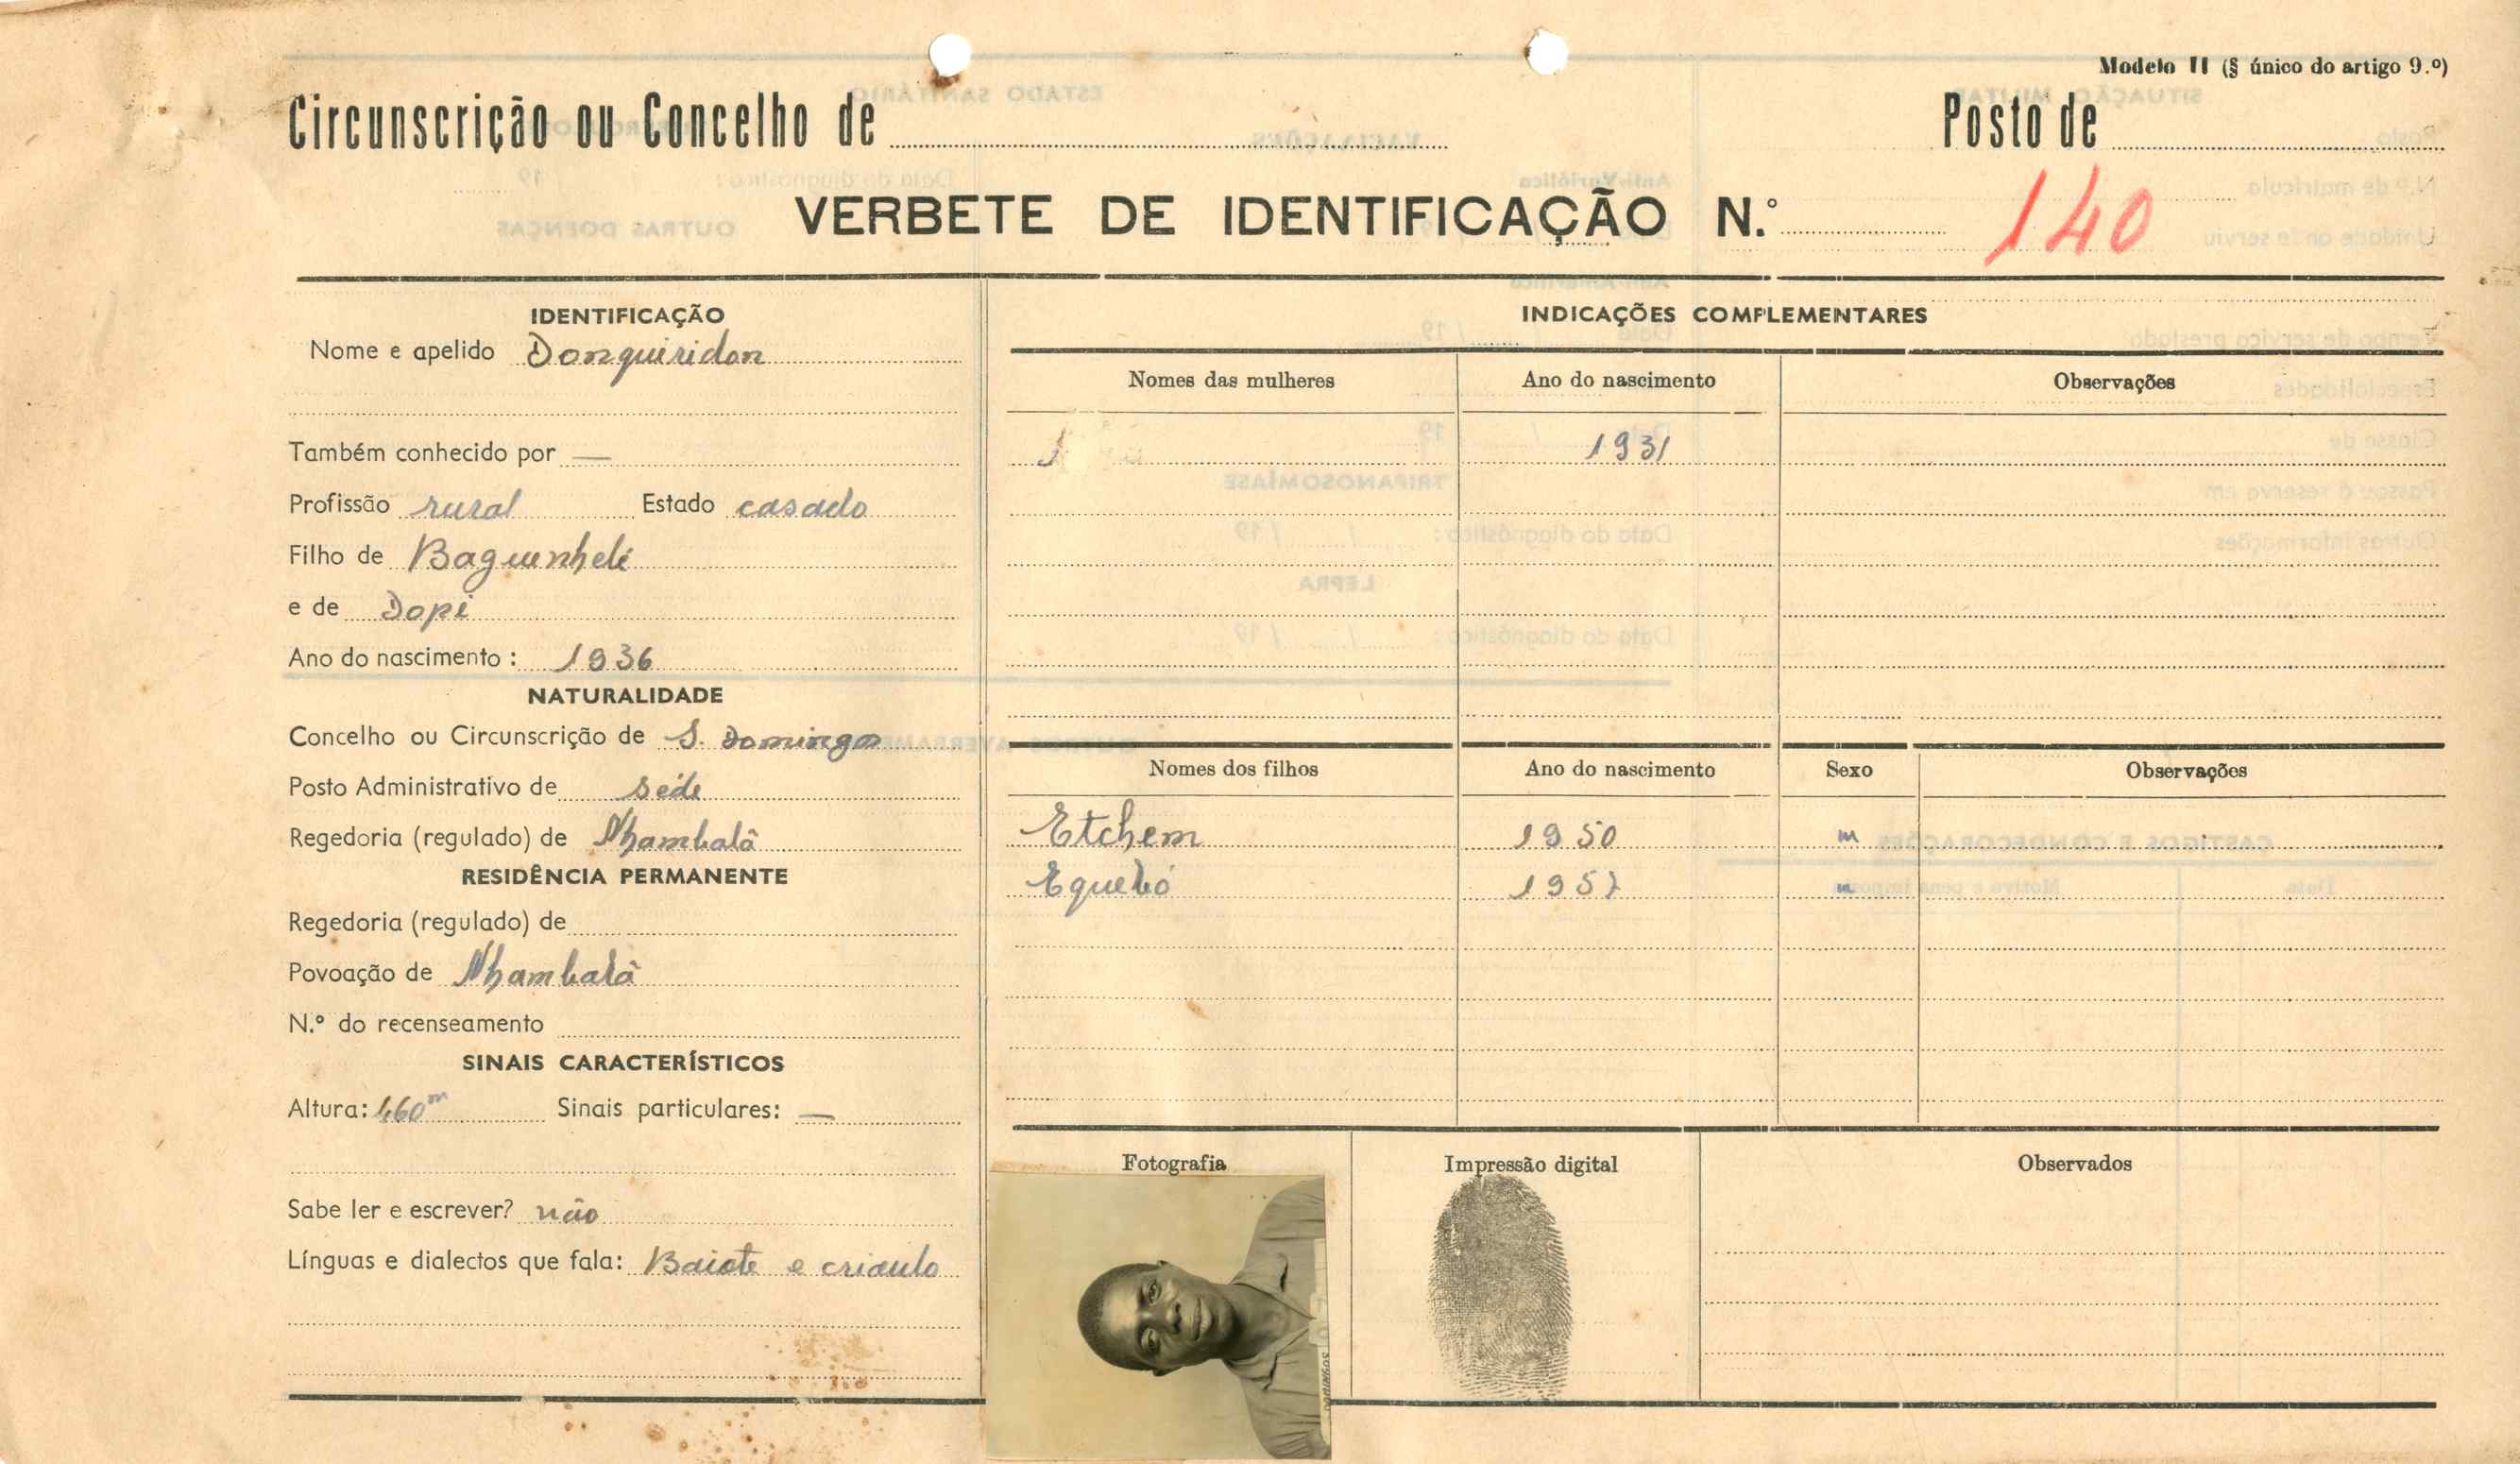 Modelo II (§ único do artigo 9.º)
Circunscrição ou Concelho de
Posto de
VERBETE DE IDENTIFICAÇÃO N.º 140
IDENTIFICAÇÃO
Nome e apelido Donquiridon
Também conhecido por —
Profissão rural Estado casado
Filho de Baguinhelé
e de Dopi
Ano do nascimento: 1936
NATURALIDADE
Concelho ou Circunscrição de S. Domingos
Posto Administrativo de séde
Regedoria (regulado) de Nhambalã
RESIDÊNCIA PERMANENTE
Regedoria (regulado) de
Povoação de Nhambalã
N.º do recenseamento
SINAIS CARACTERÍSTICOS
Altura: 1,60m Sinais particulares: —
Sabe ler e escrever? não
Línguas e dialectos que fala: Baiote e crioulo
INDICAÇÕES COMPLEMENTARES
Nomes das mulheres Ano do nascimento Observações
1931
Nomes dos filhos Ano do nascimento Sexo Observações
Etchem 1950 m
Equebó 1957 m
Fotografia Impressão digital Observados